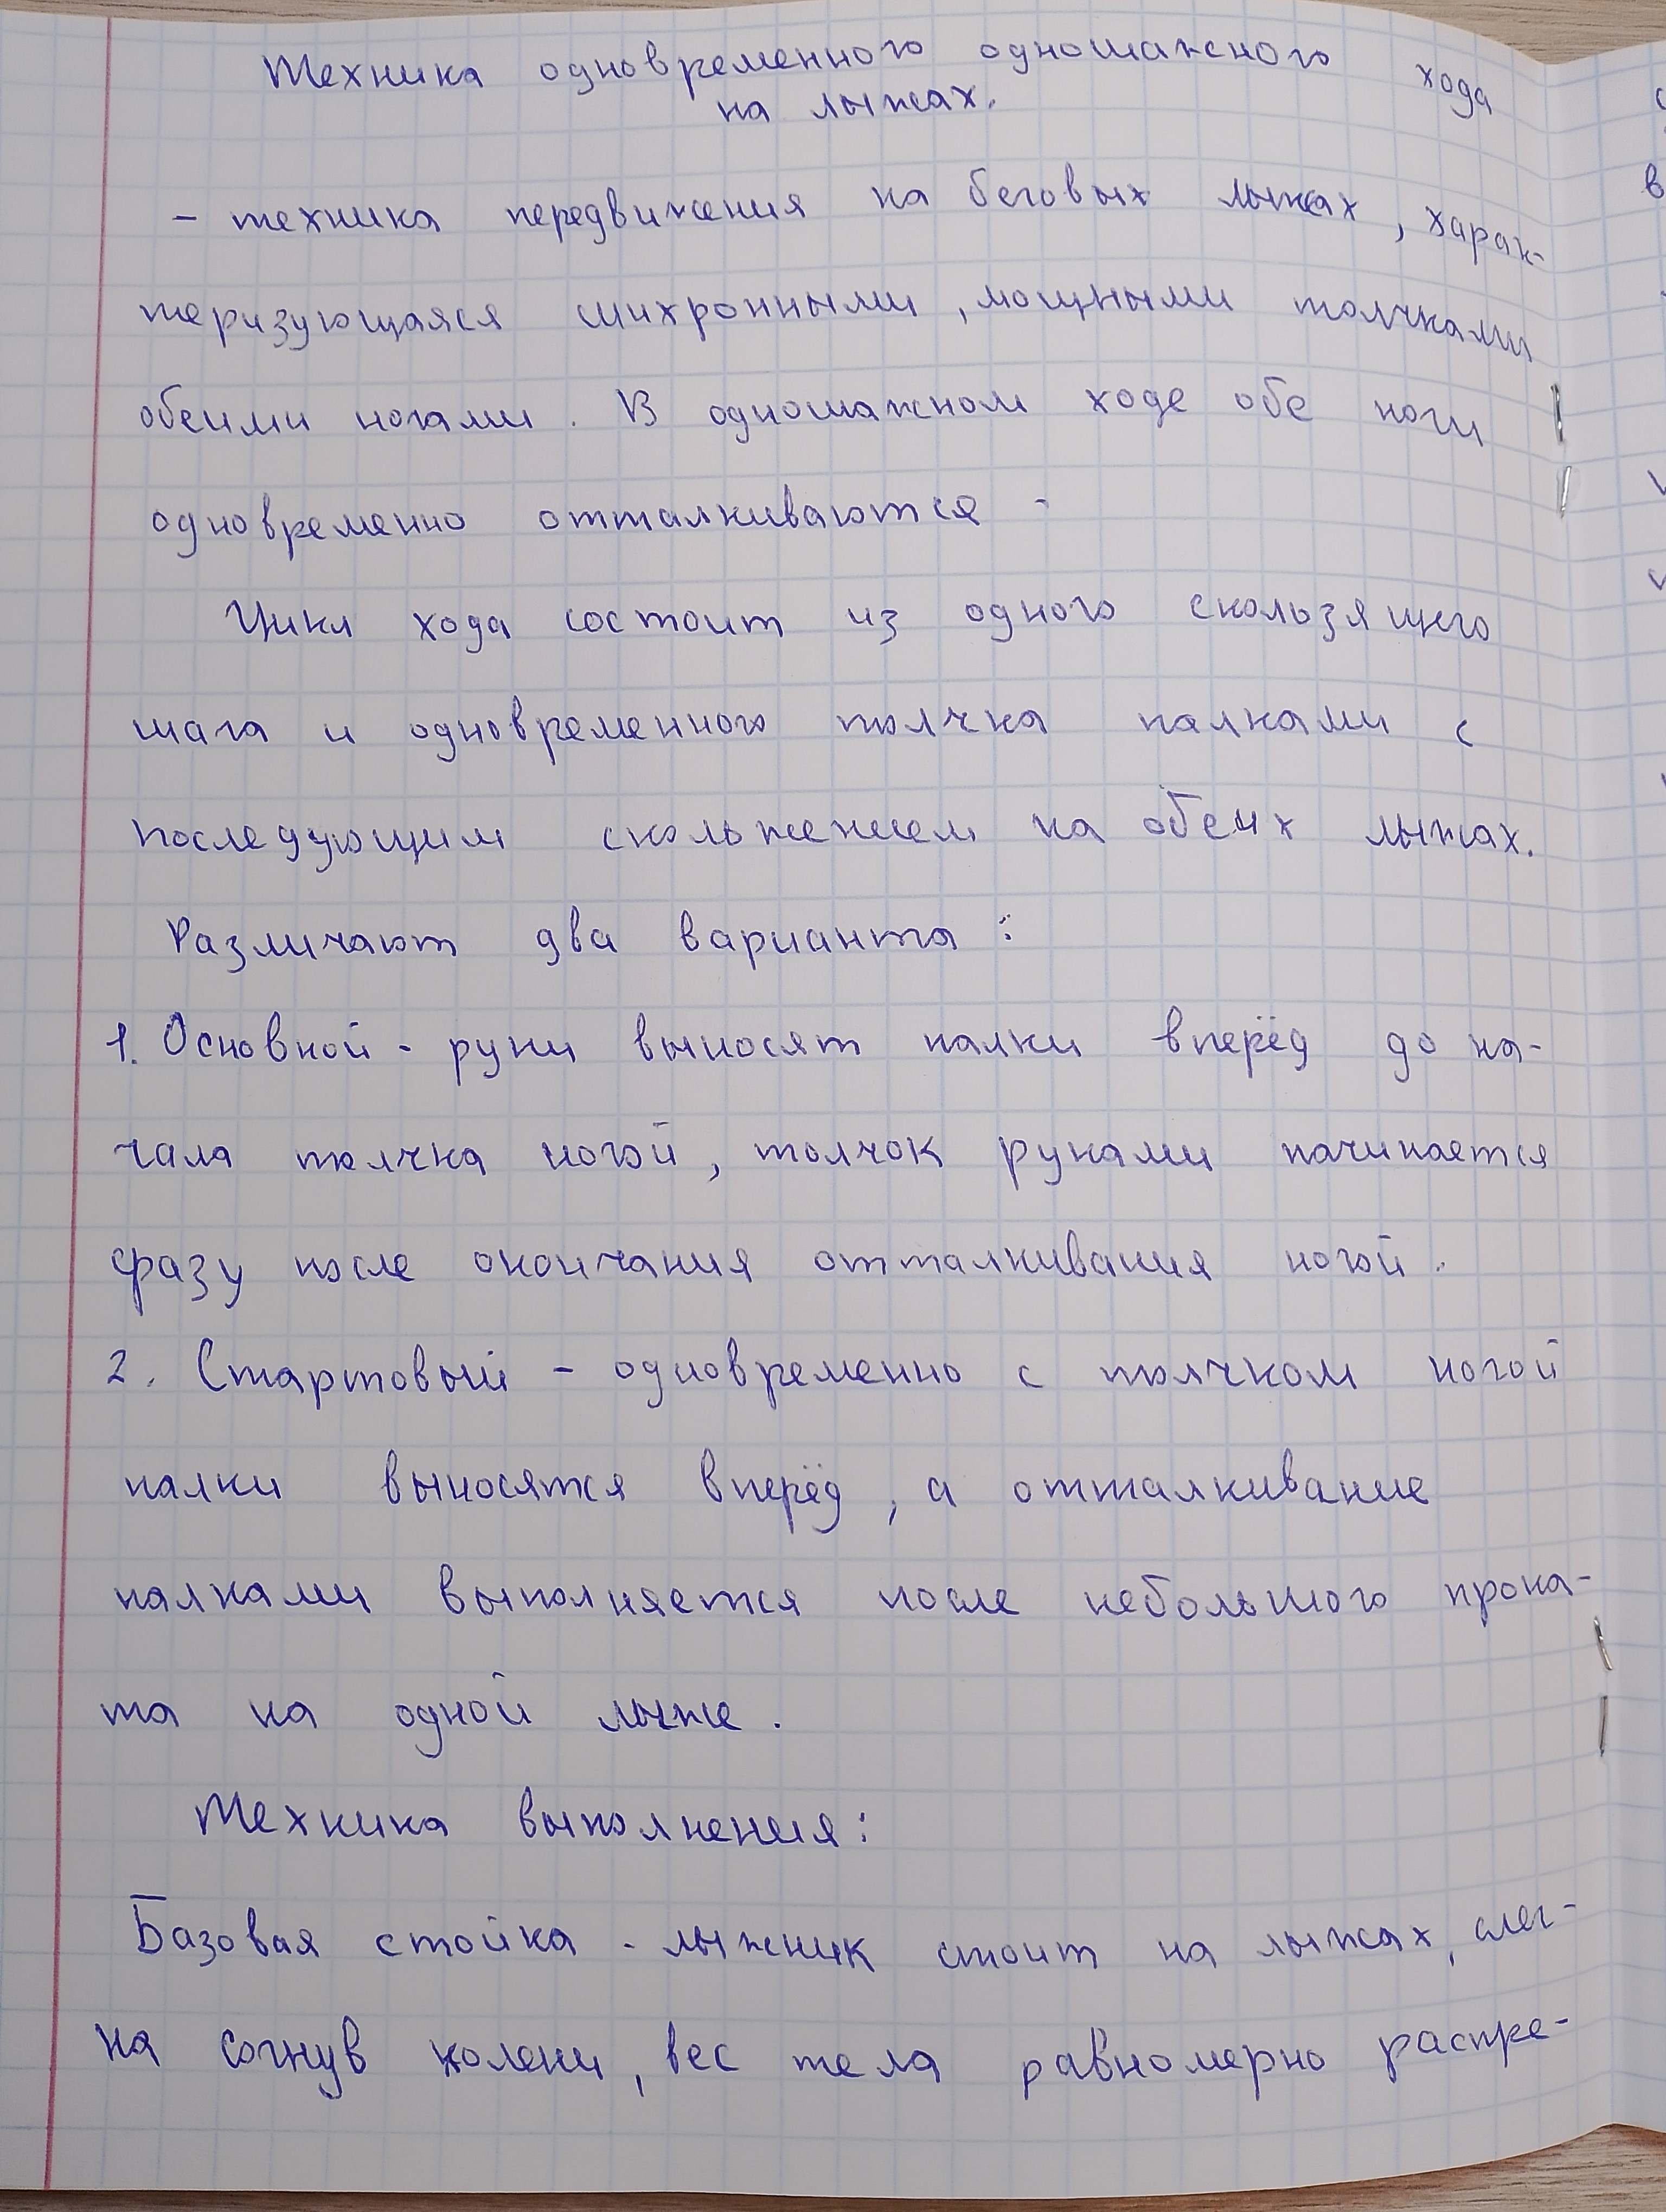 Техника одновременного одношажного хода
на лыжах.
- техника передвижения на беговых лыжах, харак-
теризующаяся синхронными, мощными толчками
обеими ногами. В одношажном ходе обе ноги
одновременно отталкиваются.
Цикл хода состоит из одного скользящего
шага и одновременного толчка палками с
последующим скольжением на обеих лыжах.
Различают два варианта:
1. Основной - руки выносят палки вперёд до на-
чала толчка ногой, толчок руками начинается
сразу после окончания отталкивания ногой.
2. Стартовый - одновременно с толчком ногой
палки выносятся вперёд, а отталкивание
палками выполняется после небольшого прока-
та на одной лыже.
Техника выполнения:
Базовая стойка - лыжник стоит на лыжах, слег-
ка согнув колени, вес тела равномерно распре-